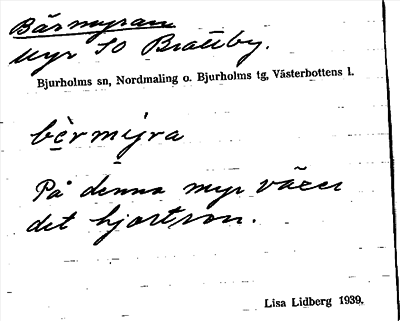 Bärmyran
Myr SO Brattby.
Bjurholms sn, Nordmaling o. Bjurholms tg, Västerbottens l.
bèrmyra
På denna myr växer
det hjortron.
Lisa Lidberg 1939.